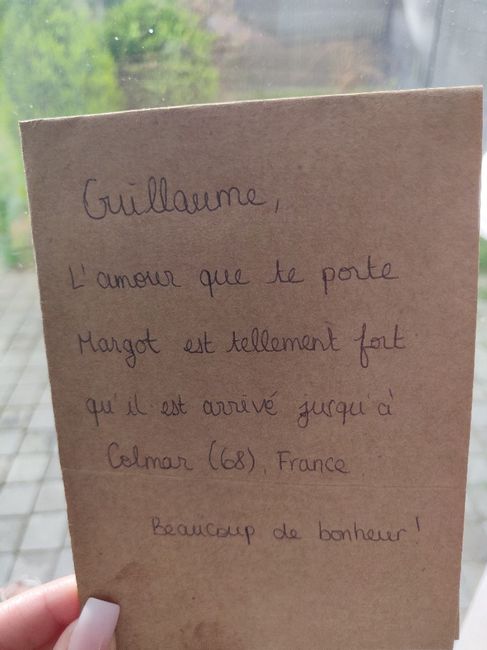 Guillaume,
L'amour que te porte
Margot est tellement fort
qu'il est arrivé jusqu'à
Colmar (68), France
Beaucoup de bonheur !